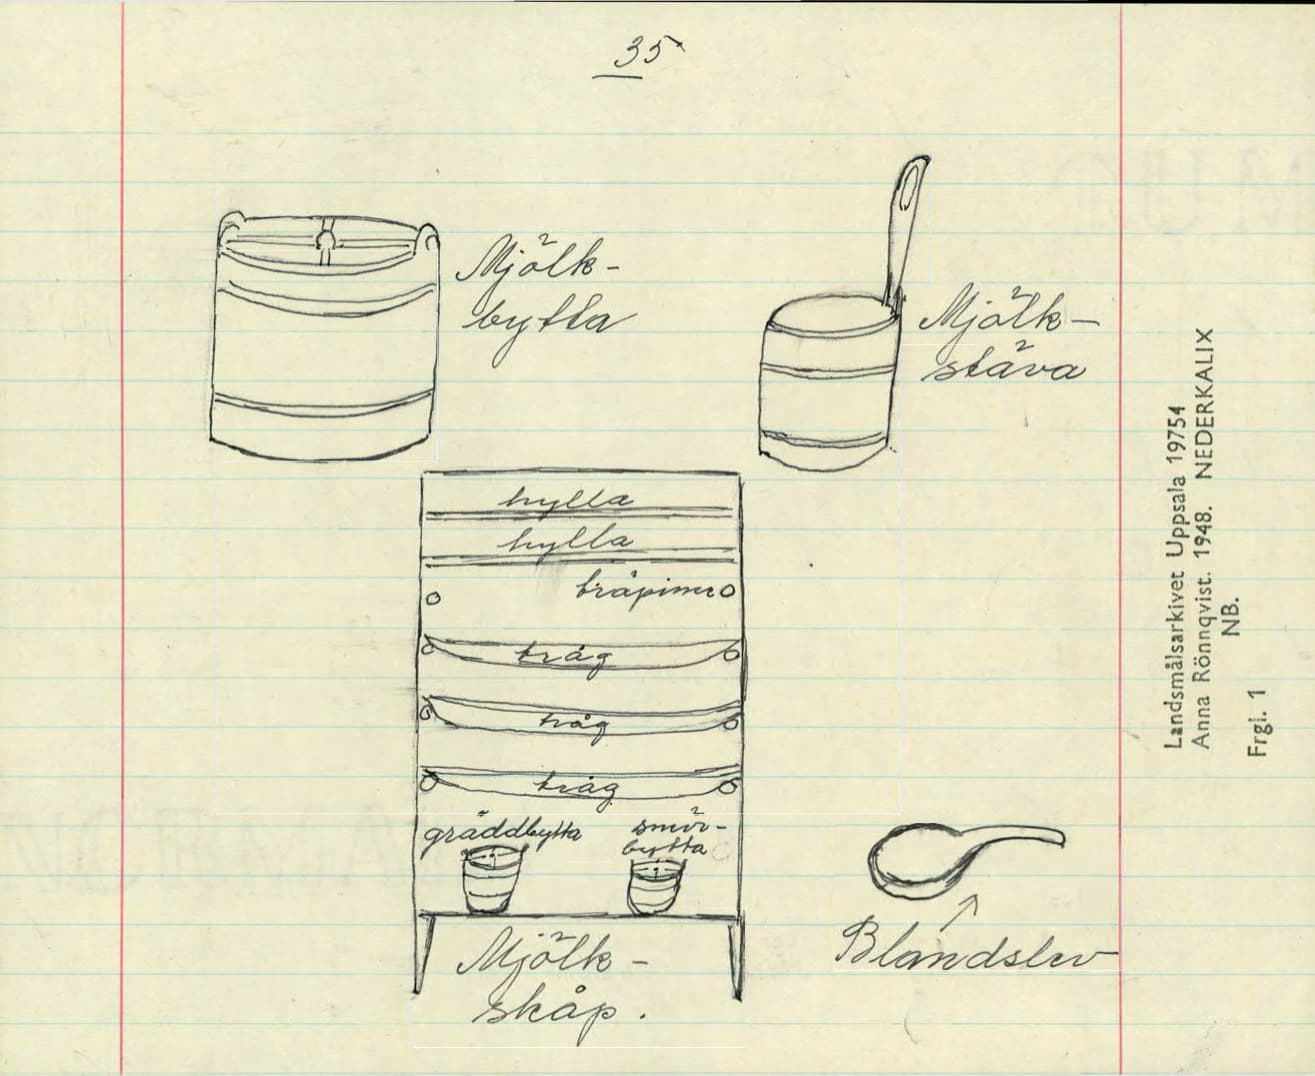 35
Mjölk-
bytta
Mjölk-
stäva
hylla
hylla
tråg
tråg
tråg
gräddbytta
smör-
bytta
Mjölk-
skåp.
Blandslev
Landsmålsarkivet Uppsala 19754
Anna Rönnqvist. 1948. NEDERKALIX
NB.
Frgl. 1